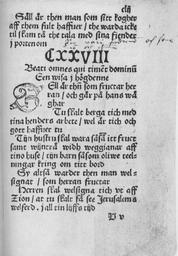 Säll är then man som sitt kogher
aff them fult haffuer / the warda icke
til skam tå the tala med sina fiender
j portenom
CXXVIII
Beati omnes qui timēt dominū
Een wisa j högdenne
Säl är thū som fructar her
ran / och går på hans wä
ghar
Tu skalt berga tich med
tina henders arbete / wel är tich och
gott haffuer tu
Tijn hustru skal wara såsō itt fruct
samt wijnträ widh weggianar aff
tino huse / tijn barn såsom oliwe teel
ningar kring om titt bord
Sy altså warder then man wel
signat / som herran fructar
Herren skal welsigna tich vt aff
Zion / at tu skalt få see Jerusalems
wilferd / j all tin lijffs tijd
P v